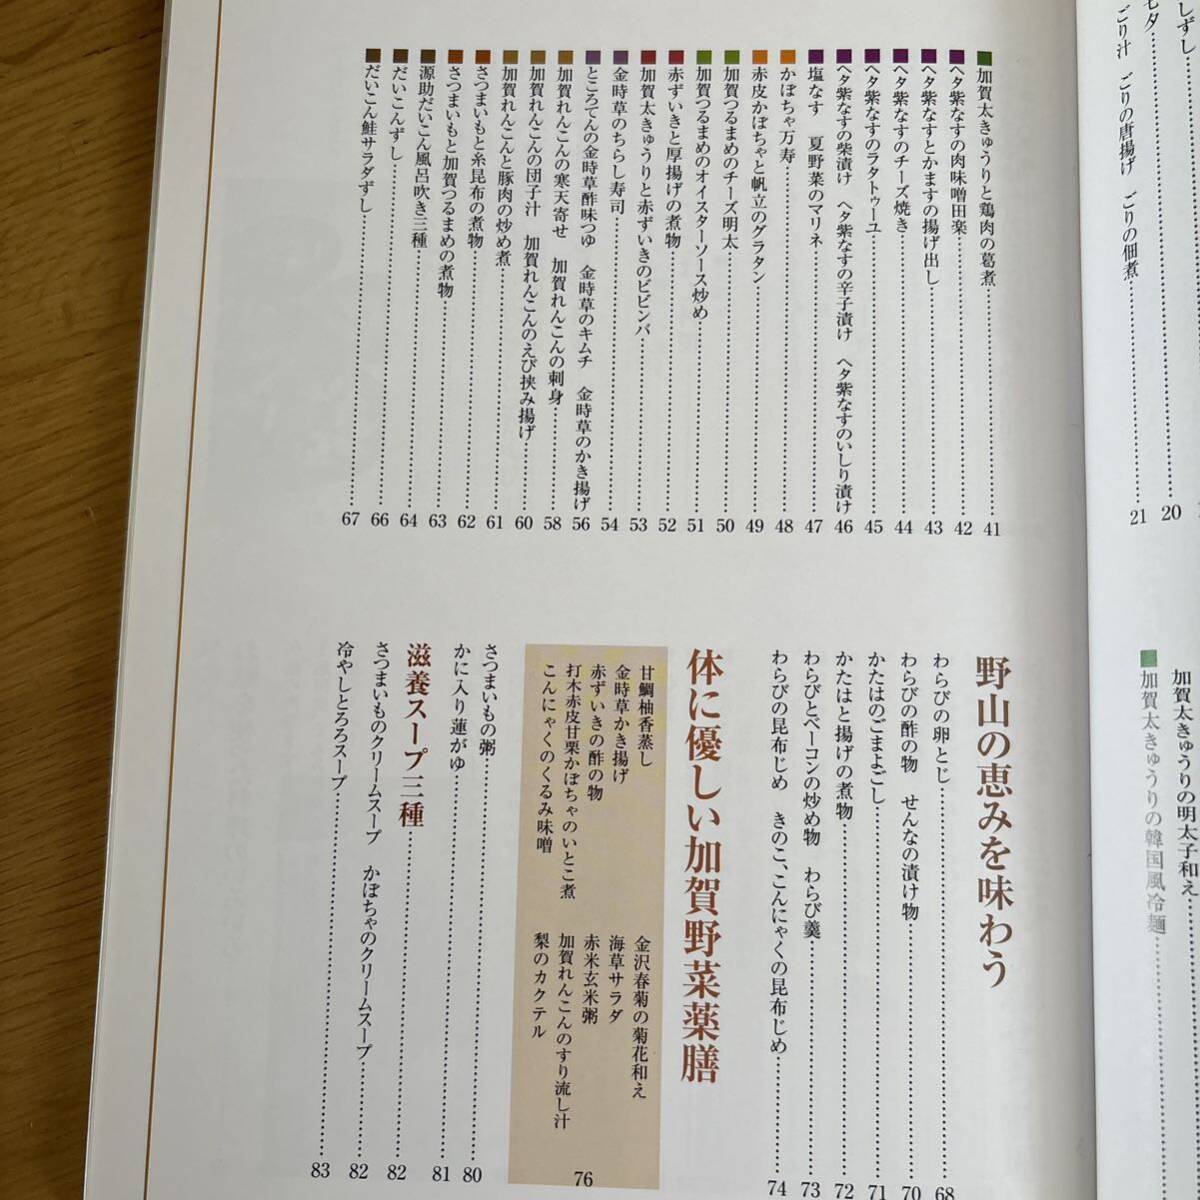 しずし
七夕……20
ごり汁　ごりの唐揚げ　ごりの佃煮……21
加賀太きゅうりの明太子和え
■加賀太きゅうりの韓国風冷麺
■加賀太きゅうりと鶏肉の葛煮……41
■ヘタ紫なすの肉味噌田楽……42
■ヘタ紫なすとかますの揚げ出し……43
■ヘタ紫なすのチーズ焼き……44
■ヘタ紫なすのラタトゥーユ……45
■ヘタ紫なすの柴漬け　ヘタ紫なすの辛子漬け　ヘタ紫なすのいしり漬け……46
■塩なす　夏野菜のマリネ……47
■かぼちゃ万寿……48
■赤皮かぼちゃと帆立のグラタン……49
■加賀つるまめのチーズ明太……50
■加賀つるまめのオイスターソース炒め……51
■赤ずいきと厚揚げの煮物……52
■加賀太きゅうりと赤ずいきのビビンバ……53
■金時草のちらし寿司……54
■ところてんの金時草酢味つゆ　金時草のキムチ　金時草のかき揚げ……56
■加賀れんこんの寒天寄せ　加賀れんこんの刺身……58
■加賀れんこんの団子汁　加賀れんこんのえび挟み揚げ……60
■加賀れんこんと豚肉の炒め煮……61
■さつまいもと糸昆布の煮物……62
■さつまいもと加賀つるまめの煮物……63
■源助だいこん風呂吹き三種……64
■だいこんずし……66
■だいこん鮭サラダずし……67
野山の恵みを味わう
わらびの卵とじ……68
わらびの酢の物　せんなの漬け物……70
かたはのごまよごし……71
かたはと揚げの煮物……72
わらびとベーコンの炒め物　わらび羹……73
わらびの昆布じめ　きのこ、こんにゃくの昆布じめ……74
体に優しい加賀野菜薬膳
甘鯛柚香蒸し
金時草かき揚げ
赤ずいきの酢の物
打木赤皮甘栗かぼちゃのいとこ煮
こんにゃくのくるみ味噌
金沢春菊の菊花和え
海草サラダ
赤米玄米粥
加賀れんこんのすり流し汁
梨のカクテル
76
さつまいもの粥……80
かに入り蓮がゆ……81
滋養スープ三種……82
さつまいものクリームスープ　かぼちゃのクリームスープ……82
冷やしとろろスープ……83